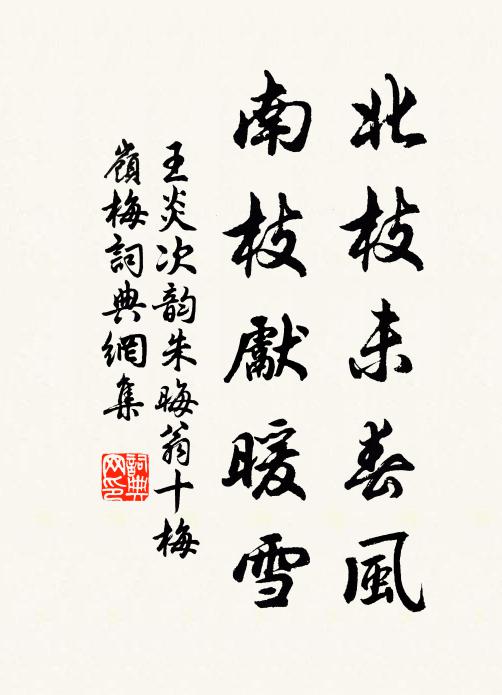 北枝未春風
南枝獻暖雪
王炎次韵朱晦翁十梅
嶺梅詞典網集
詞典
网印